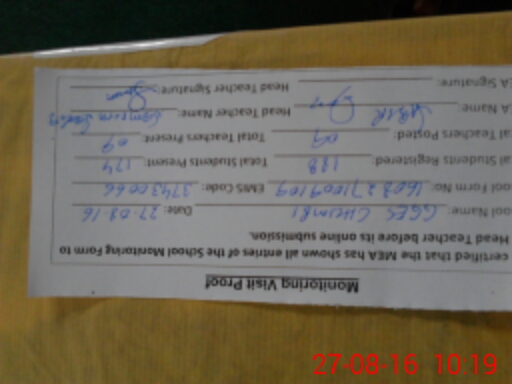 Monitoring Visit Proof
certified that the MEA has shown all entries of the School Monitoring Form to
Head Teacher before its online submission.
ool Name: GGES CHUMBI Date: 27-08-16
ool Form No: EMIS Code: 37430066
al Students Registered: 188 Total Students Present: 174
al Teachers Posted: 09 Total Teachers Present: 09
A Name: SABIR Head Teacher Name:
EA Signature: Head Teacher Signature:
27-08-16 10:19